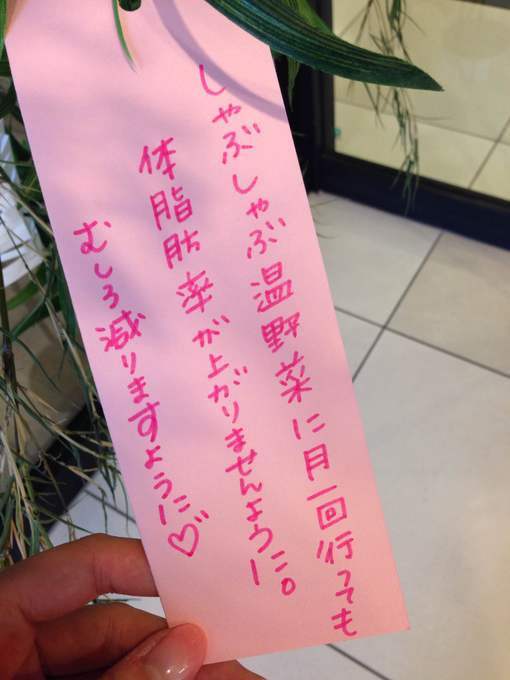 しゃぶしゃぶ温野菜に月一回行っても
体脂肪率が上がりませんように。
むしろ減りますように♡